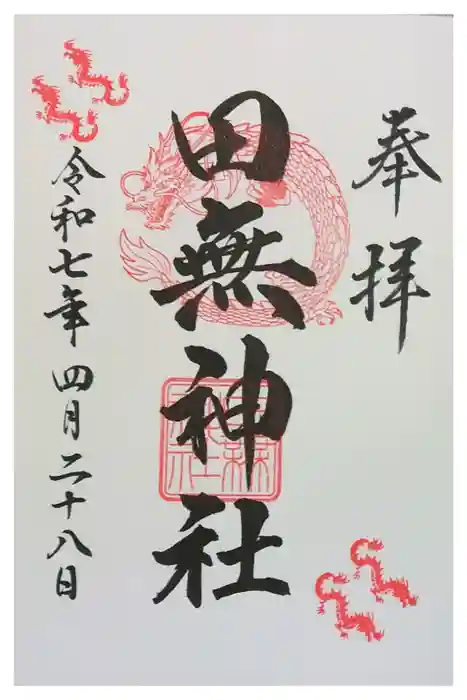 奉拝
田無神社
令和七年 四月二十八日